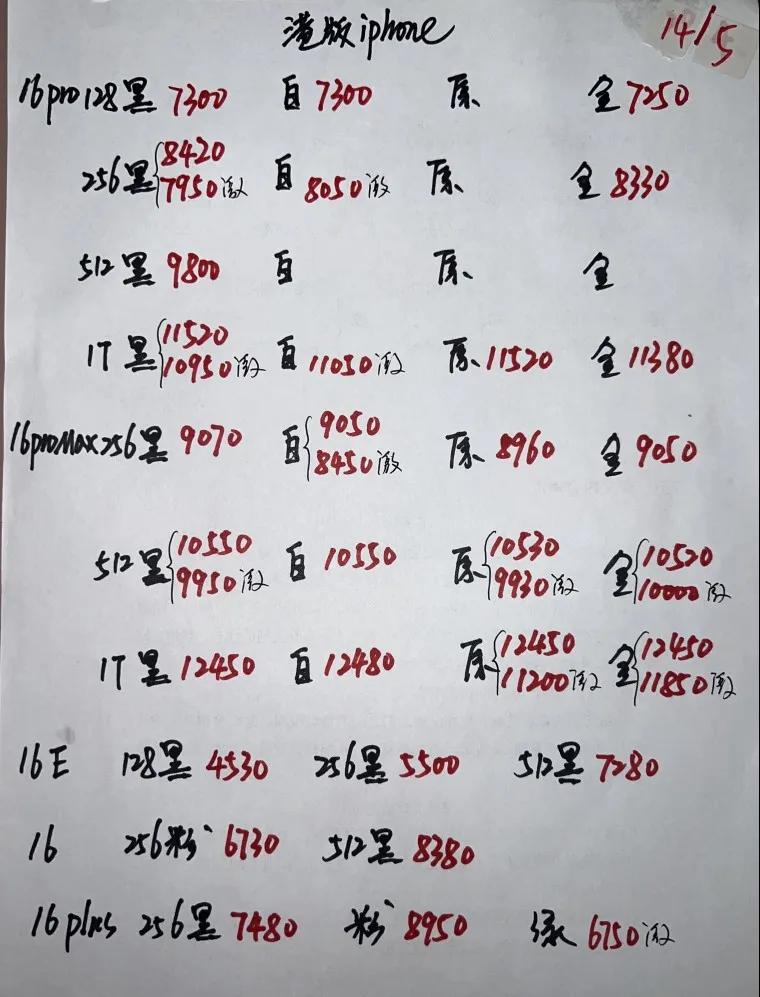 港版iphone 14/5
16pro128黑 7300 白 7300 原 金 7250
256黑 8420 7950激 白 8050激 原 金 8330
512黑 9800 白 原 金
1T黑 11520 10950激 白 11050激 原 11520 金 11380
16proMax256黑 9070 白 9050 8450激 原 8960 金 9050
512黑 10550 9950激 白 10550 原 10530 9930激 金 10520 10000激
1T黑 12450 白 12480 原 12450 11200激 金 12450 11850激
16E 128黑 4530 256黑 5500 512黑 7280
16 256粉 6730 512黑 8380
16plus 256黑 7480 粉 8950 绿 6750激